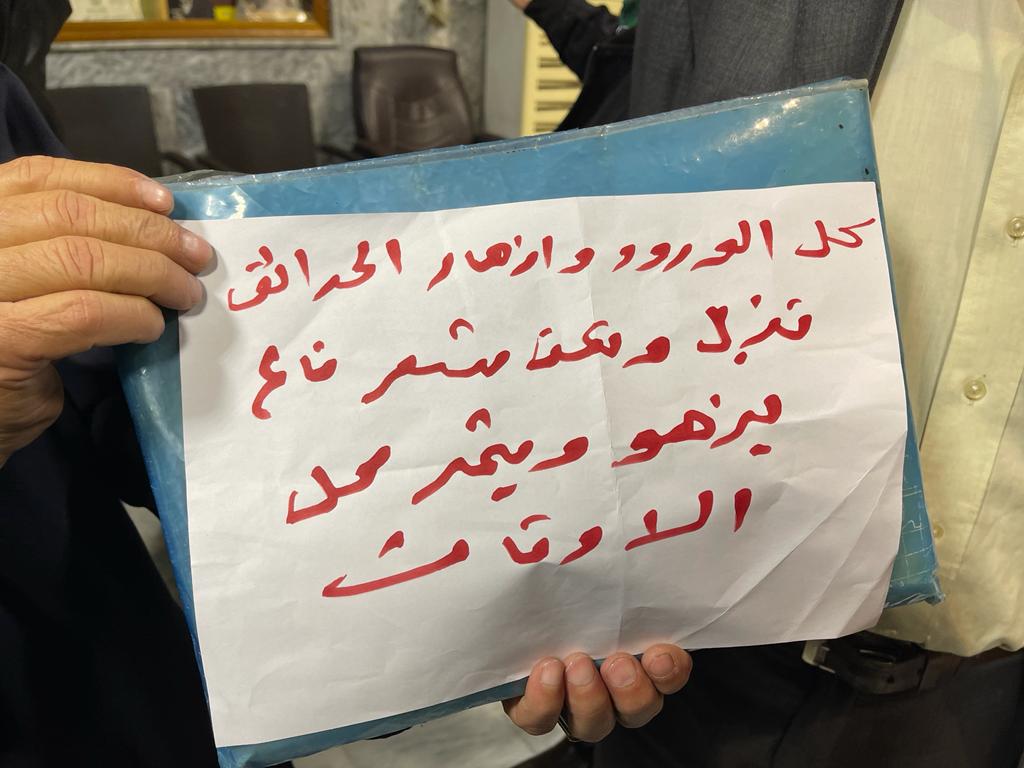 كل الورود وازهار الحدائق
تذبل
يزهو ويثمر كل
الاوقات